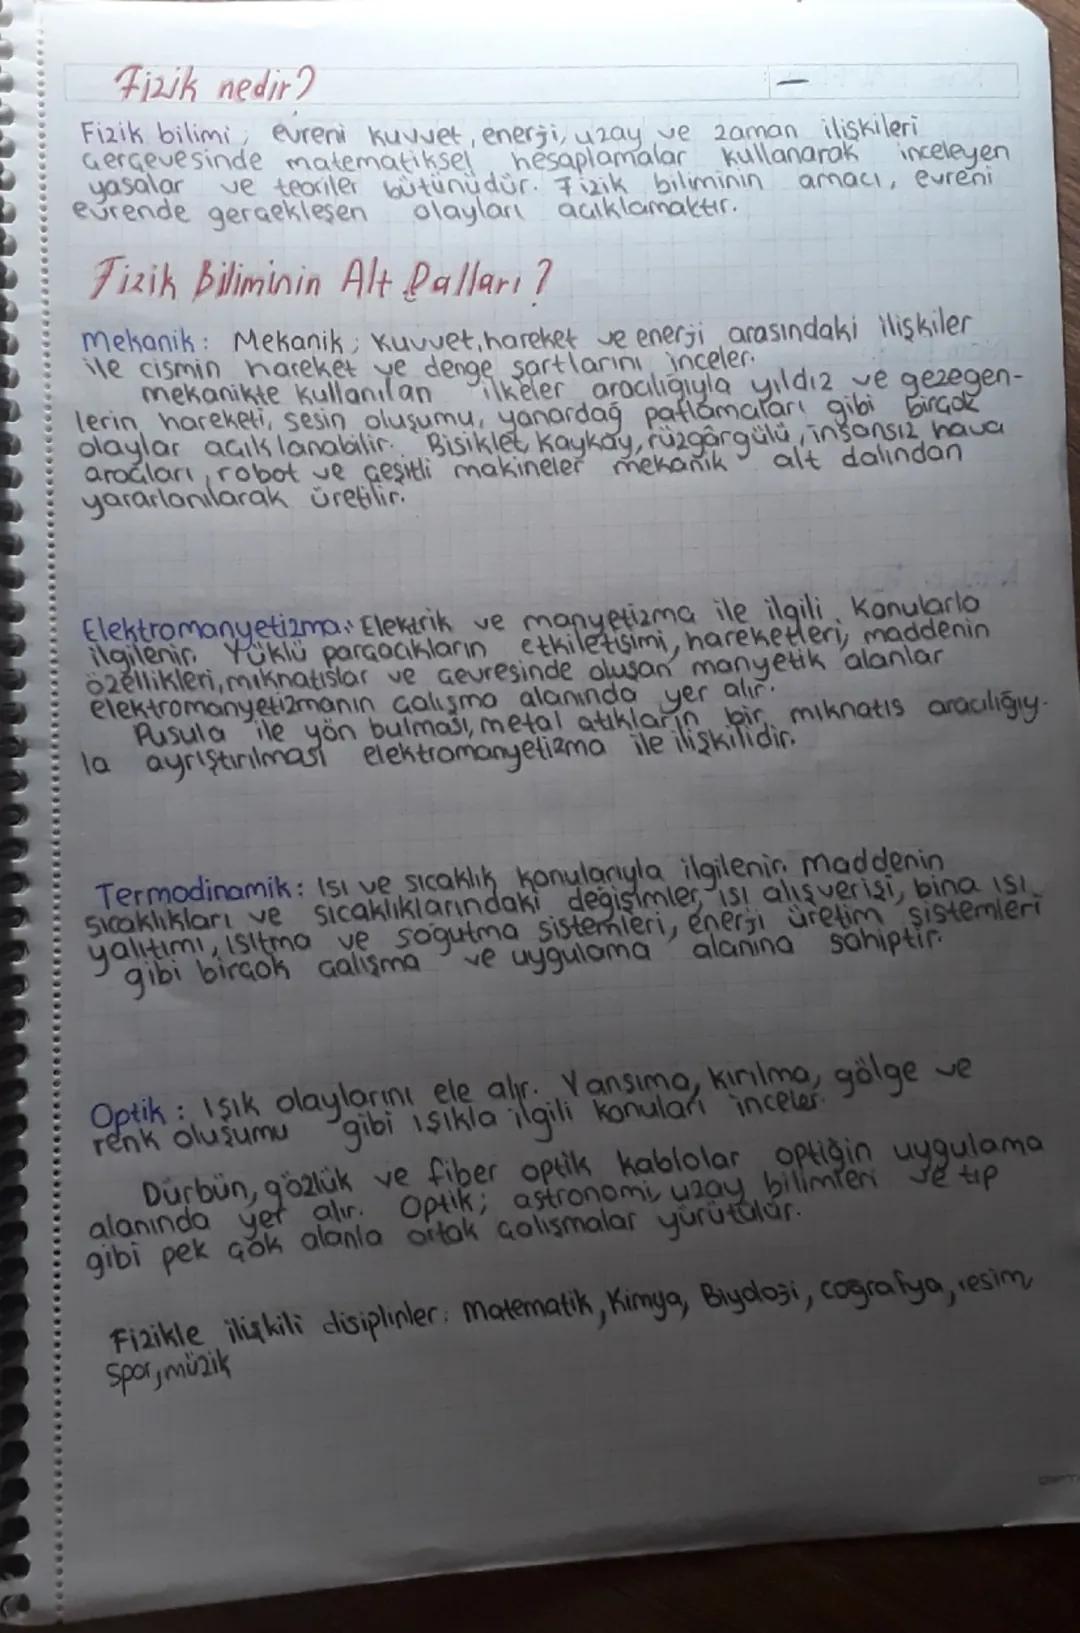 Fizik nedir?
Fizik bilimi; evreni kuvvet, enerji, uzay ve zaman ilişkileri
çerçevesinde matematiksel hesaplamalar kullanarak inceleyen
yasalar ve teoriler bütünüdür. Fizik biliminin amacı, evreni
evrende gerçekleşen olayları açıklamaktır.
Fizik Biliminin Alt Dalları?
Mekanik: Mekanik; kuvvet, hareket ve enerji arasındaki ilişkiler
ile cismin hareket ve denge şartlarını inceler.
mekanikte kullanılan ilkeler aracılığıyla yıldız ve gezegen-
lerin hareketi, sesin oluşumu, yanardağ patlamaları gibi birçok
olaylar açıklanabilir. Bisiklet, kaykay, rüzgârgülü, insansız hava
araçları, robot ve çeşitli makineler mekanik alt dalından
yararlanılarak üretilir.
Elektromanyetizma: Elektrik ve manyetizma ile ilgili konularla
ilgilenir. Yüklü parçacıkların etkiletişimi, hareketleri, maddenin
özellikleri, mıknatıslar ve çevresinde oluşan manyetik alanlar
elektromanyetizmanın çalışma alanında yer alır.
Pusula ile yön bulması, metal atıkların bir mıknatıs aracılığıy-
la ayrıştırılması elektromanyetizma ile ilişkilidir.
Termodinamik: Isı ve sıcaklık konularıyla ilgilenir. Maddenin
sıcaklıkları ve sıcaklıklarındaki değişimler, ısı alışverişi, bina ısı
yalıtımı, ısıtma ve soğutma sistemleri, enerji üretim sistemleri
gibi birçok çalışma ve uygulama alanına sahiptir.
Optik: Işık olaylarını ele alır. Yansıma, kırılma, gölge ve
renk oluşumu gibi ışıkla ilgili konuları inceler.
Dürbün, gözlük ve fiber optik kablolar optiğin uygulama
alanında yer alır. Optik; astronomi, uzay bilimleri ve tıp
gibi pek çok alanla ortak çalışmalar yürütülür.
Fizikle ilişkili disiplinler: Matematik, Kimya, Biyoloji, coğrafya, resim,
spor, müzik